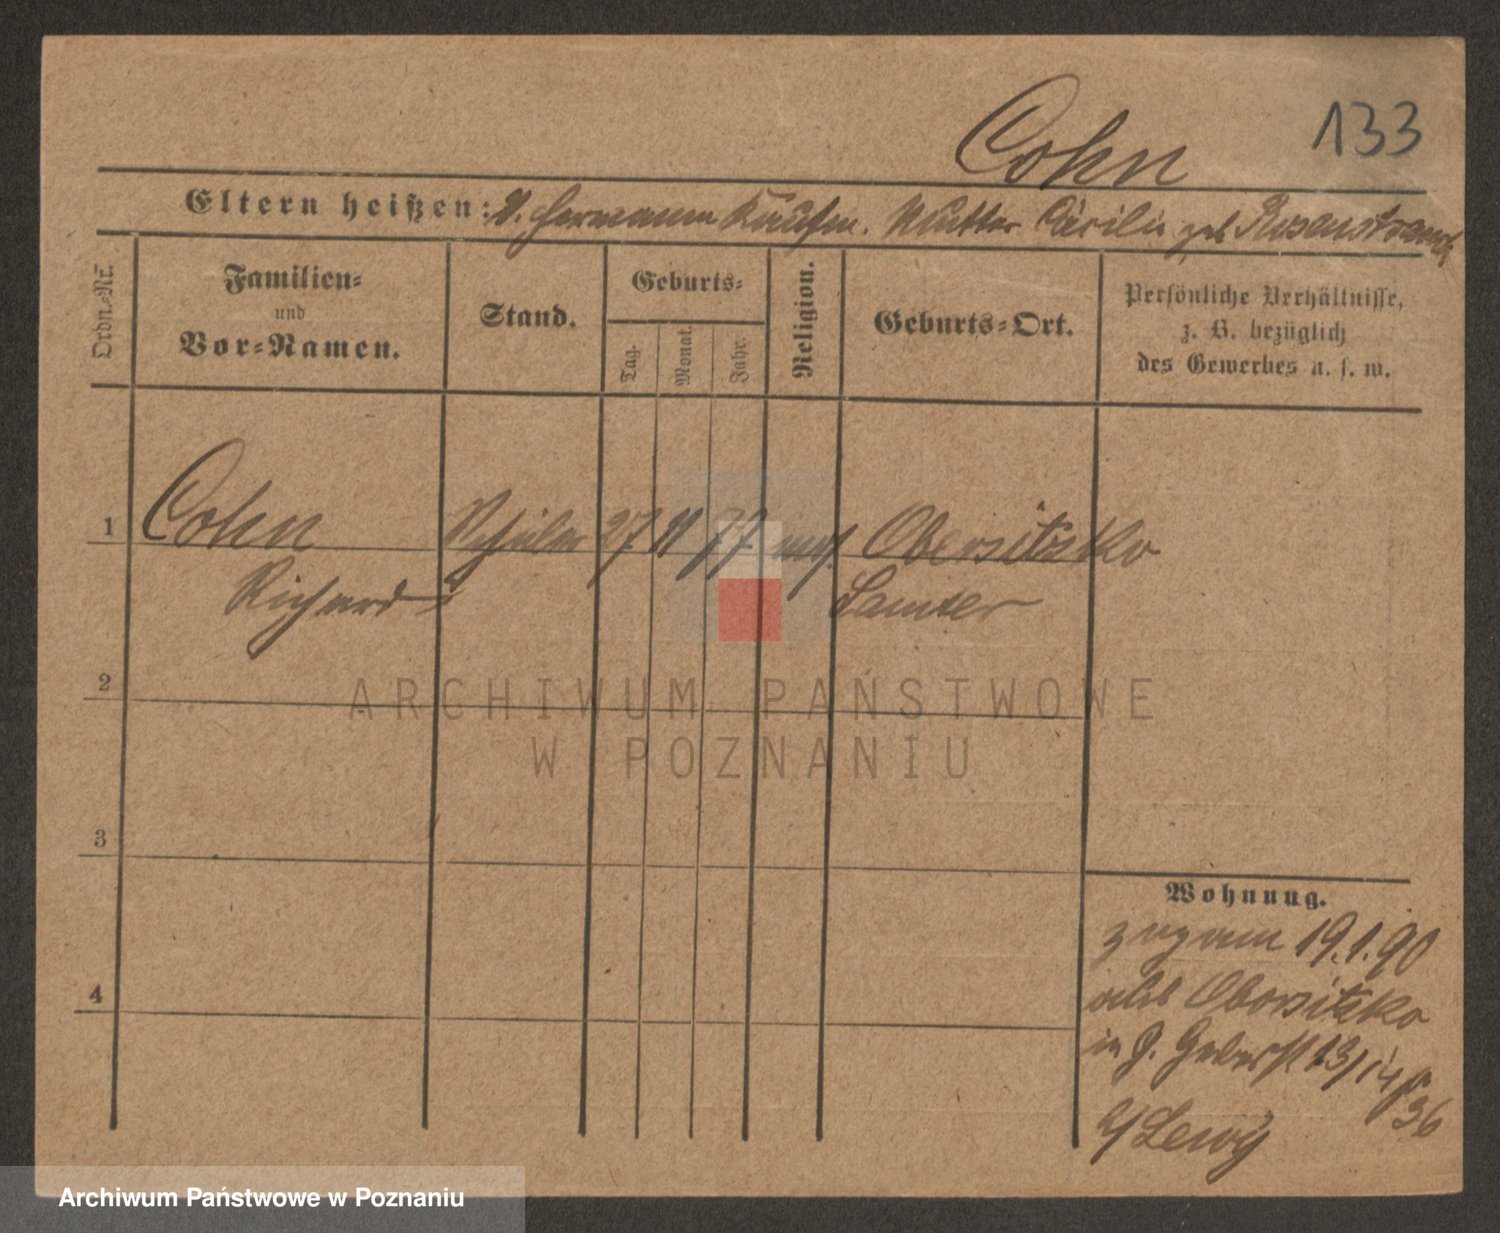 Cohn
133
Eltern heißen: V. Hermann Kaufm. Mutter Cäcilie geb
Ordn.-Nr.
Familien-
und
Vor-Namen.
Stand.
Geburts-
Tag.
Monat.
Jahr.
Religion.
Geburts-Ort.
Persönliche Verhältnisse,
z. B. bezüglich
des Gewerbes u. s. w.
1
Cohn Schüler 27 11 77 mos. Obersitzko
Richard Samter
2
3
4
Wohnung.
zugam 19.1.90
Obersitzko
in 13/14
36
Lewy
ARCHIWUM PAŃSTWOWE
W POZNANIU
Archiwum Państwowe w Poznaniu